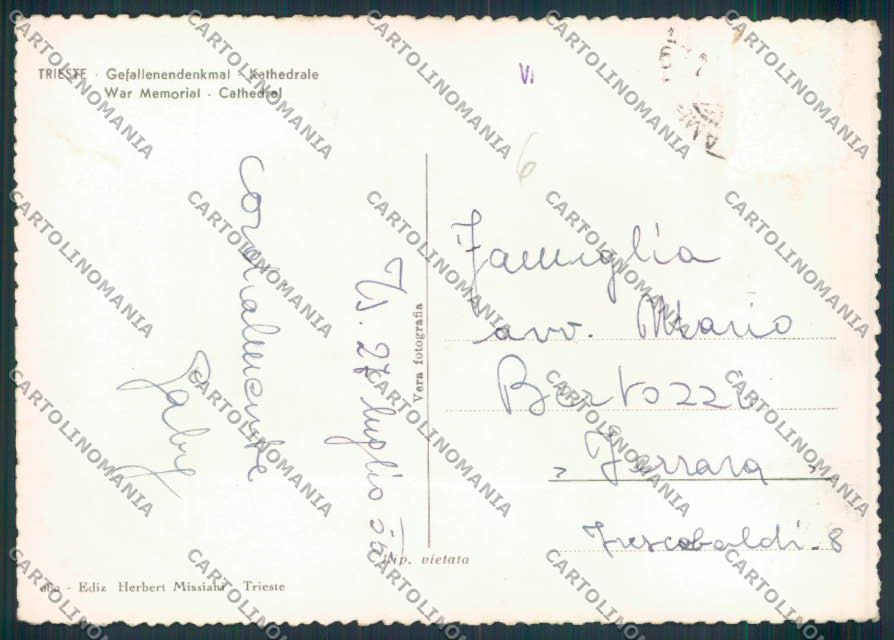 TRIESTE - Gefallenendenkmal - Kathedrale
War Memorial - Cathedral
VI
6
cordialmente
Gaby
Ts. 27 luglio 55
Vera fotografia
Rip. vietata
Famiglia
avv. Mario
Bertozzi
Ferrara
Frescobaldi - 8
Ediz Herbert Missiahi Trieste
CARTOLINOMANIA